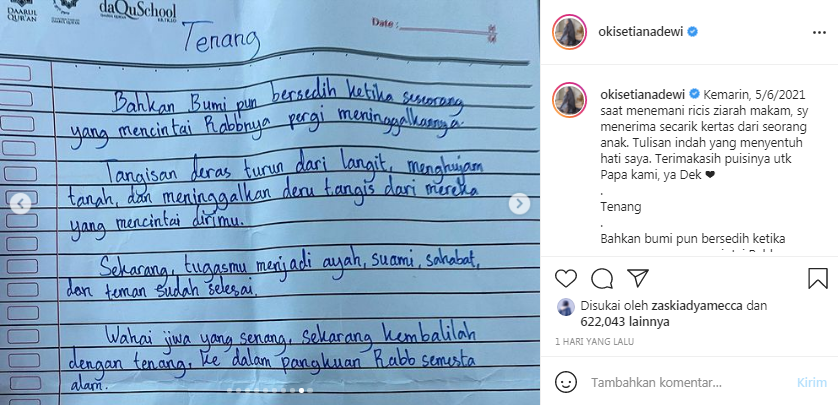 DAARUL
QUR'AN
daQuSchool
Date :
Tenang
Bahkan Bumi pun bersedih ketika seseorang
yang mencintai Rabbnya pergi meninggalkannya.
Tangisan deras turun dari langit, menghujam
tanah, dan meninggalkan deru tangis dari mereka
yang mencintai dirimu.
Sekarang, tugasmu menjadi ayah, suami, sahabat,
dan teman sudah selesai.
Wahai jiwa yang senang, sekarang kembalilah
dengan tenang, ke dalam pangkuan Rabb semesta
alam.
okisetianadewi
okisetianadewi Kemarin, 5/6/2021
saat menemani ricis ziarah makam, sy
menerima secarik kertas dari seorang
anak. Tulisan indah yang menyentuh
hati saya. Terimakasih puisinya utk
Papa kami, ya Dek ❤
.
Tenang
.
Bahkan bumi pun bersedih ketika
Disukai oleh zaskiadyamecca dan
622,043 lainnya
1 HARI YANG LALU
Tambahkan komentar...
Kirim